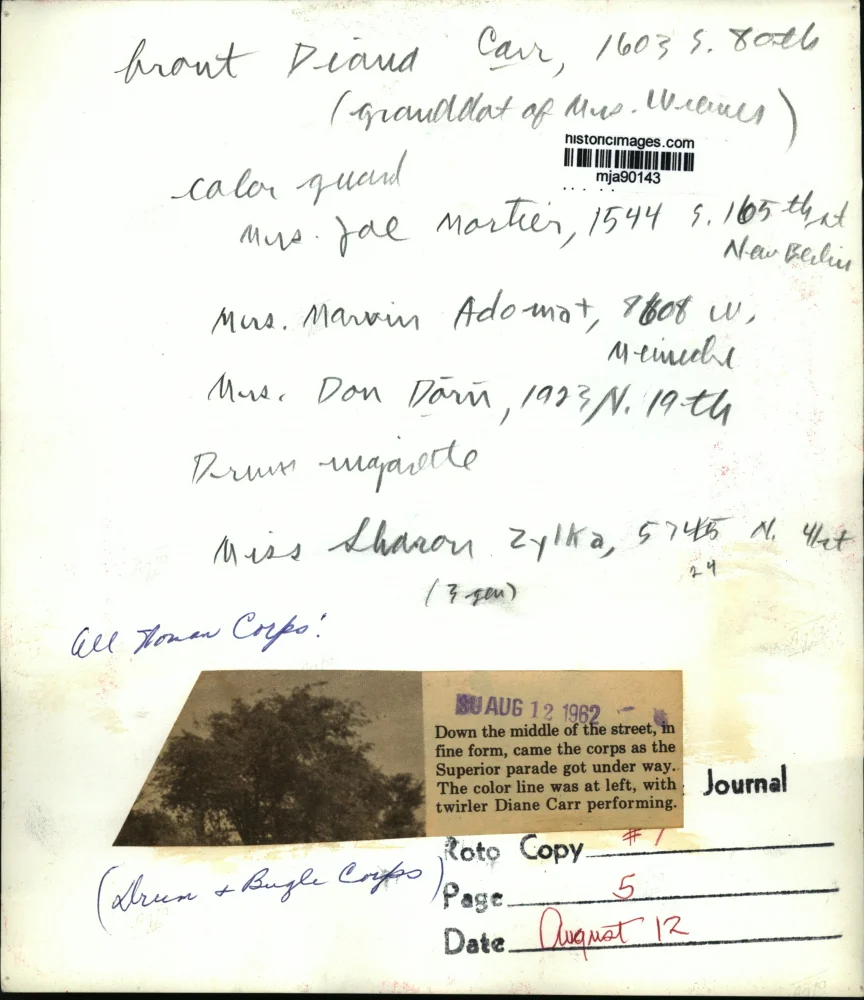 front Diana Carr, 1603 S. 80th
(granddat of Mrs. Wiemer)
historicimages.com
mja90143
color guard
Mrs. Joe Mortier, 1544 S. 165th st
New Berlin
Mrs. Marvin Adomat, 8608 W.
Meinecke
Mrs. Don Dorn, 1923 N. 19th
Drum majorette
Miss Sharon Zylka, 5745 N. 41st
24
(3 gen)
All Woman Corps!
SU AUG 12 1962
Down the middle of the street, in
fine form, came the corps as the
Superior parade got under way.
The color line was at left, with
twirler Diane Carr performing.
Journal
Roto Copy #1
(Drum & Bugle Corps)
Page 5
Date August 12